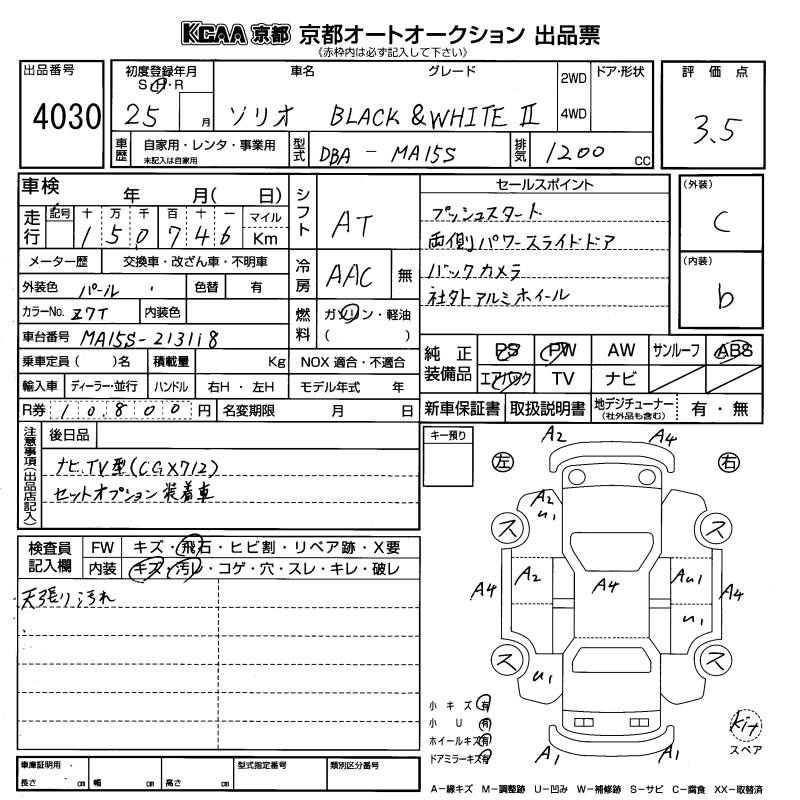 KCAA 京都 京都オートオークション 出品票
《赤枠内は必ず記入して下さい》
出品番号 初度登録年月 車名 グレード 2WD ドア・形状 評価点
S・H・R
4030 25 月 ソリオ BLACK & WHITE Ⅱ 4WD 3.5
車歴 自家用・レンタ・事業用 型式 DBA - MA15S 排気 1200 cc
未記入は自家用
車検 年 月( 日) シフト AT セールスポイント (外装)
走行 記号 十 万 千 百 十 一 マイル プッシュスタート C
1 5 0 7 4 6 Km 両側パワースライドドア
メーター歴 交換車・改ざん車・不明車 冷房 AAC 無 バックカメラ (内装)
外装色 パール 色替 有 社外アルミホイール b
カラーNo. Z7T 内装色 燃料 ガソリン・軽油
( )
車台番号 MA15S-213118
乗車定員( )名 積載量 Kg NOX 適合・不適合 純正装備品 PS PW AW サンルーフ ABS
輸入車 ディーラー・並行 ハンドル 右H・左H モデル年式 年 エアバック TV ナビ
R券 10,800 円 名変期限 月 日 新車保証書 取扱説明書 地デジチューナー 有・無
(社外品も含む)
注意事項(出品店記入) 後日品 キー預り
ナビTV型(CGX712)
セットオプション装着車
検査員記入欄 FW キズ・飛石・ヒビ割・リペア跡・X要
内装 キズ・汚レ・コゲ・穴・スレ・キレ・破レ
天張り汚れ
A2 A4
左 右
A2
U1
ス ス
A4 A2 A4 AU1 A4
U1
ス ス
U1
小キズ 有
小U 有
ホイールキズ 有
ドアミラーキズ 有
A1 A1
Kit
スペア
車庫証明用 型式指定番号 類別区分番号
長さ cm 幅 cm 高さ cm
A-線キズ M-調整跡 U-凹み W-補修跡 S-サビ C-腐食 XX-取替済